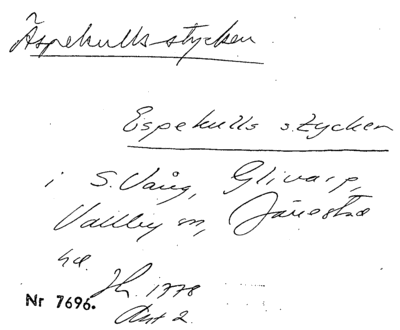 Äspekulls stycken
Espekulls stycken
i S. Vång, Glivarp,
Vallby m, Järestad
hd.
Jh. 1778
Akt 2.
Nr 7696.